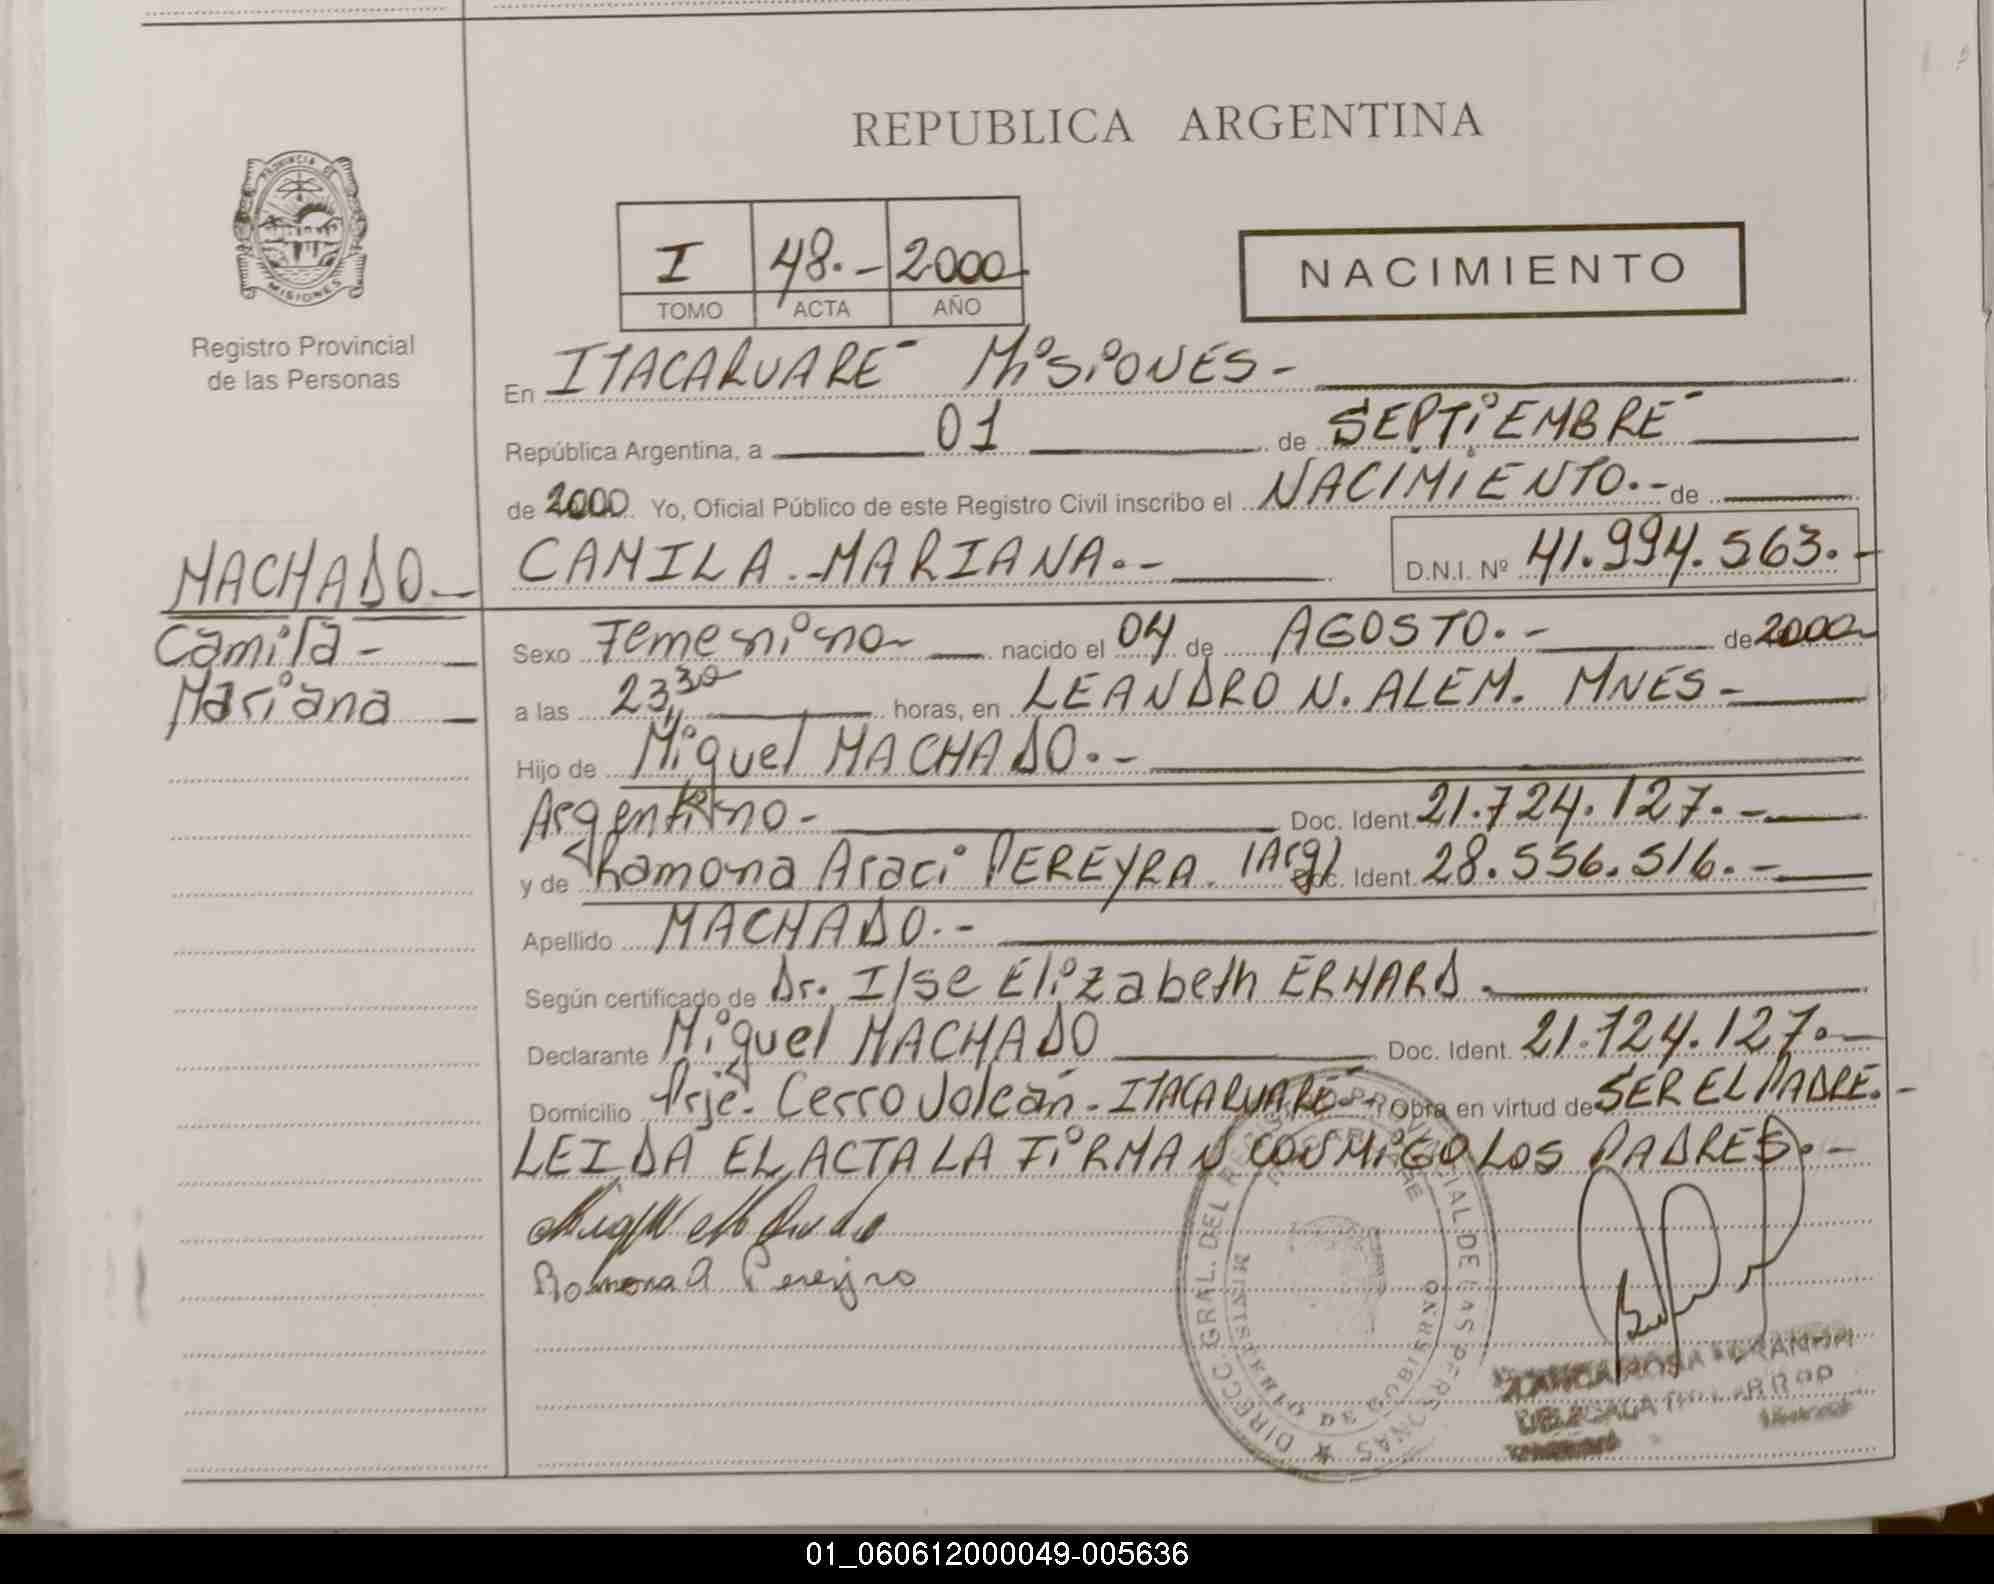 REPUBLICA ARGENTINA
PROVINCIA DE
MISIONES
Registro Provincial
de las Personas
I 48.- 2000
TOMO ACTA AÑO
NACIMIENTO
En ITACARUARE MiSiONES-
República Argentina, a 01 de SEPTiEMBRE
de 2000 Yo, Oficial Público de este Registro Civil inscribo el NACIMIENTO.- de
CAMILA.-MARIANA.- D.N.I. Nº 41.994.563.-
MACHADO.-
Camila-
Mariana
Sexo Femenino nacido el 04 de AGOSTO.- de 2000
a las 23,30 horas, en LEANDRO N. ALEM. MNES-
Hijo de Miguel MACHADO.-
Argentino- Doc. Ident. 21.724.127.-
y de Ramona Araci PEREYRA. (Arg) Doc. Ident. 28.556.516.-
Apellido MACHADO.-
Según certificado de Dr. Ilse Elizabeth ERHARD.
Declarante Miguel MACHADO Doc. Ident. 21.724.127.-
Domicilio Prje. Cerro Volcán- ITACARUARE- Obra en virtud de SER EL PADRE.-
LEIDA EL ACTA LA FiRMAN CONMiGO LOS PADRES.-
Miguel Machado
Ramona A Pereyra
DIRECC. GRAL. DEL REG. PROVINCIAL DE LAS PERSONAS
MINISTERIO DE GOBIERNO
ROSA
01_060612000049-005636